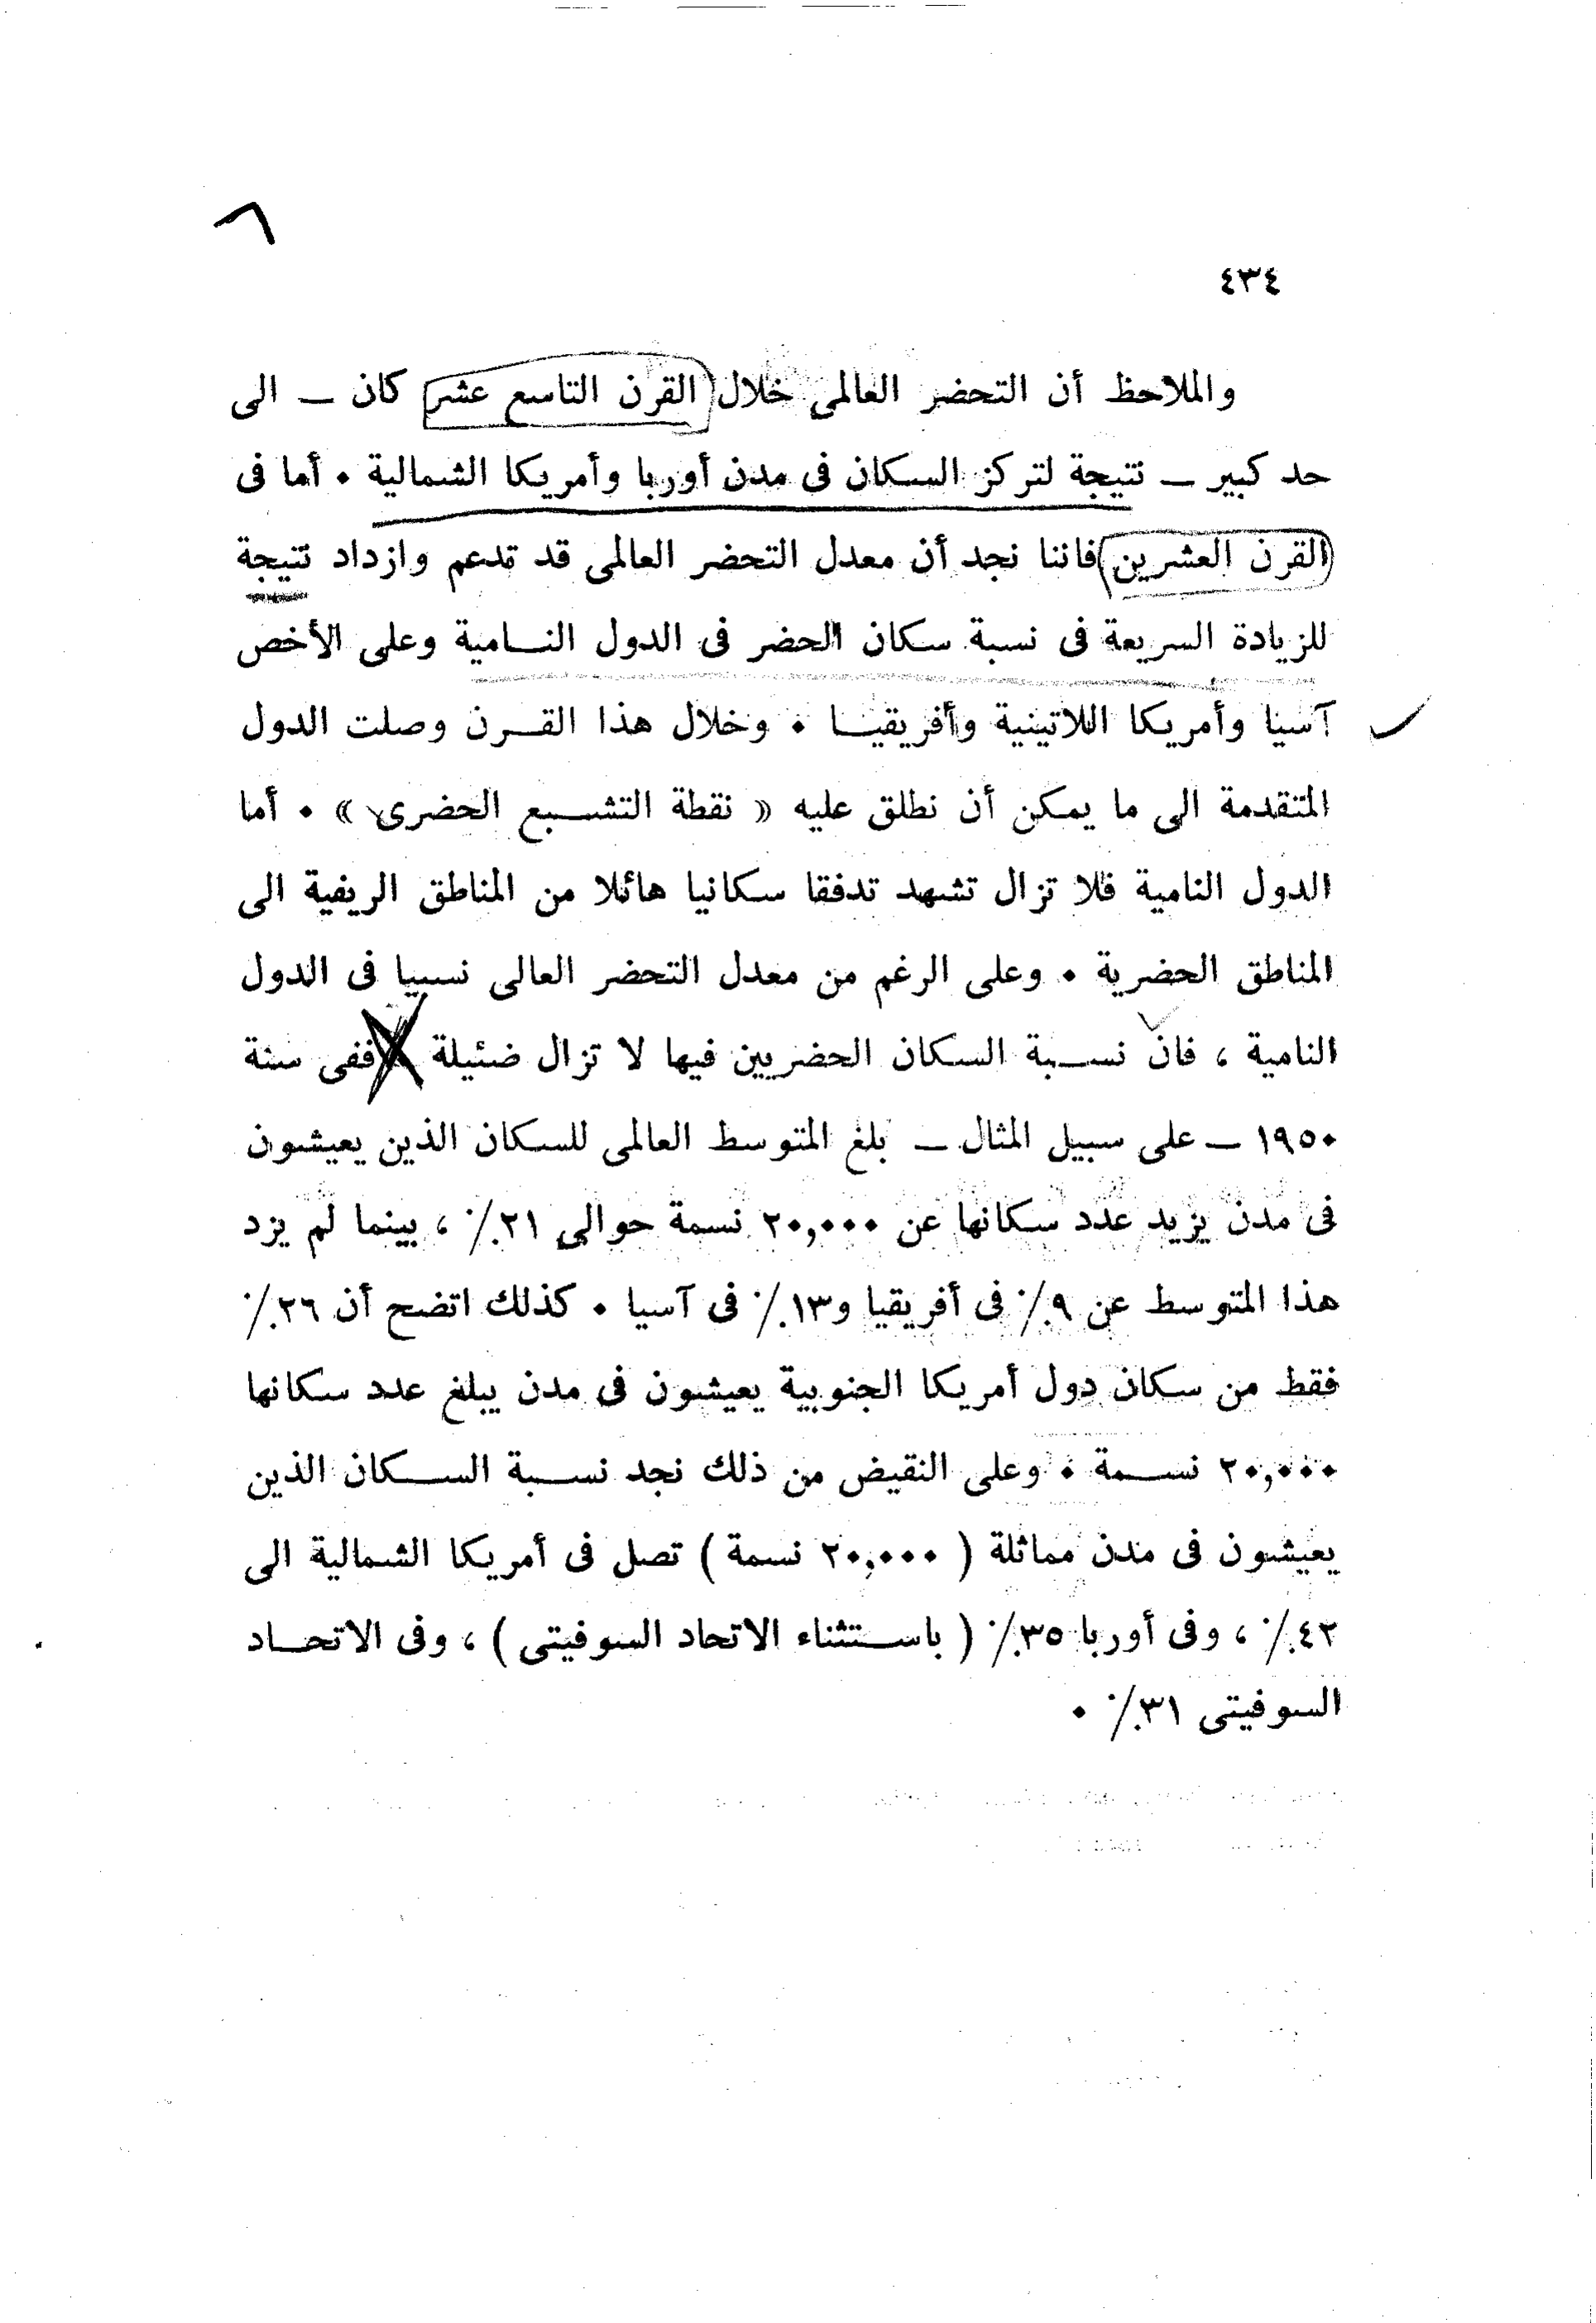 ٦
٤٣٤
والملاحظ أن التحضر العالمى خلال القرن التاسع عشر كان — الى
حد كبير — نتيجة لتركز السكان فى مدن أوربا وأمريكا الشمالية . أما فى
القرن العشرين فاننا نجد أن معدل التحضر العالمى قد تدعم وازداد نتيجة
للزيادة السريعة فى نسبة سكان الحضر فى الدول النامية وعلى الأخص
آسيا وأمريكا اللاتينية وأفريقيا . وخلال هذا القرن وصلت الدول
المتقدمة الى ما يمكن أن نطلق عليه « نقطة التشبع الحضرى » . أما
الدول النامية فلا تزال تشهد تدفقا سكانيا هائلا من المناطق الريفية الى
المناطق الحضرية . وعلى الرغم من معدل التحضر العالى نسبيا فى الدول
النامية ، فان نسبة السكان الحضريين فيها لا تزال ضئيلة ففى سنة
١٩٥٠ — على سبيل المثال — بلغ المتوسط العالمى للسكان الذين يعيشون
فى مدن يزيد عدد سكانها عن ٢٠,٠٠٠ نسمة حوالى ٢١٪ ، بينما لم يزد
هذا المتوسط عن ٩٪ فى أفريقيا و١٣٪ فى آسيا . كذلك اتضح أن ٢٦٪
فقط من سكان دول أمريكا الجنوبية يعيشون فى مدن يبلغ عدد سكانها
٢٠,٠٠٠ نسمة . وعلى النقيض من ذلك نجد نسبة السكان الذين
يعيشون فى مدن مماثلة ( ٢٠,٠٠٠ نسمة ) تصل فى أمريكا الشمالية الى
٤٢٪ ، وفى أوربا ٣٥٪ ( باستثناء الاتحاد السوفيتى ) ، وفى الاتحاد
السوفيتى ٣١٪ .